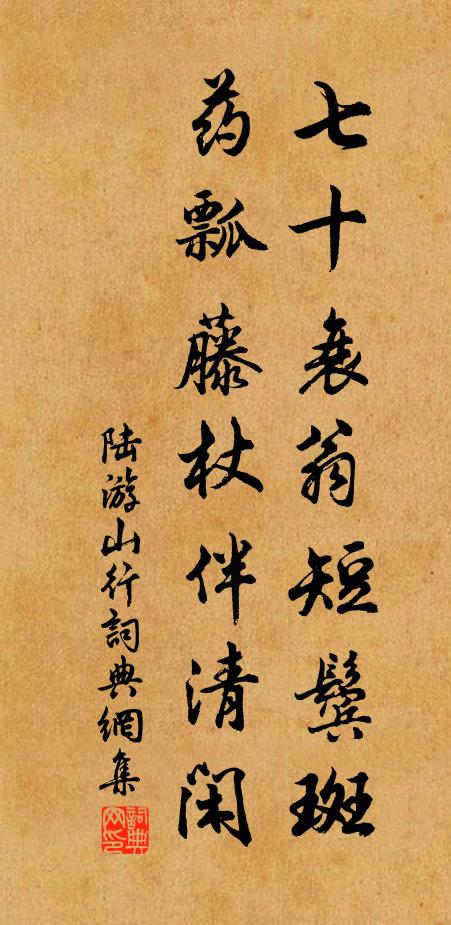 七十衰翁短鬓斑
药瓢藤杖伴清闲
陆游山行詞典網集
詞典网印